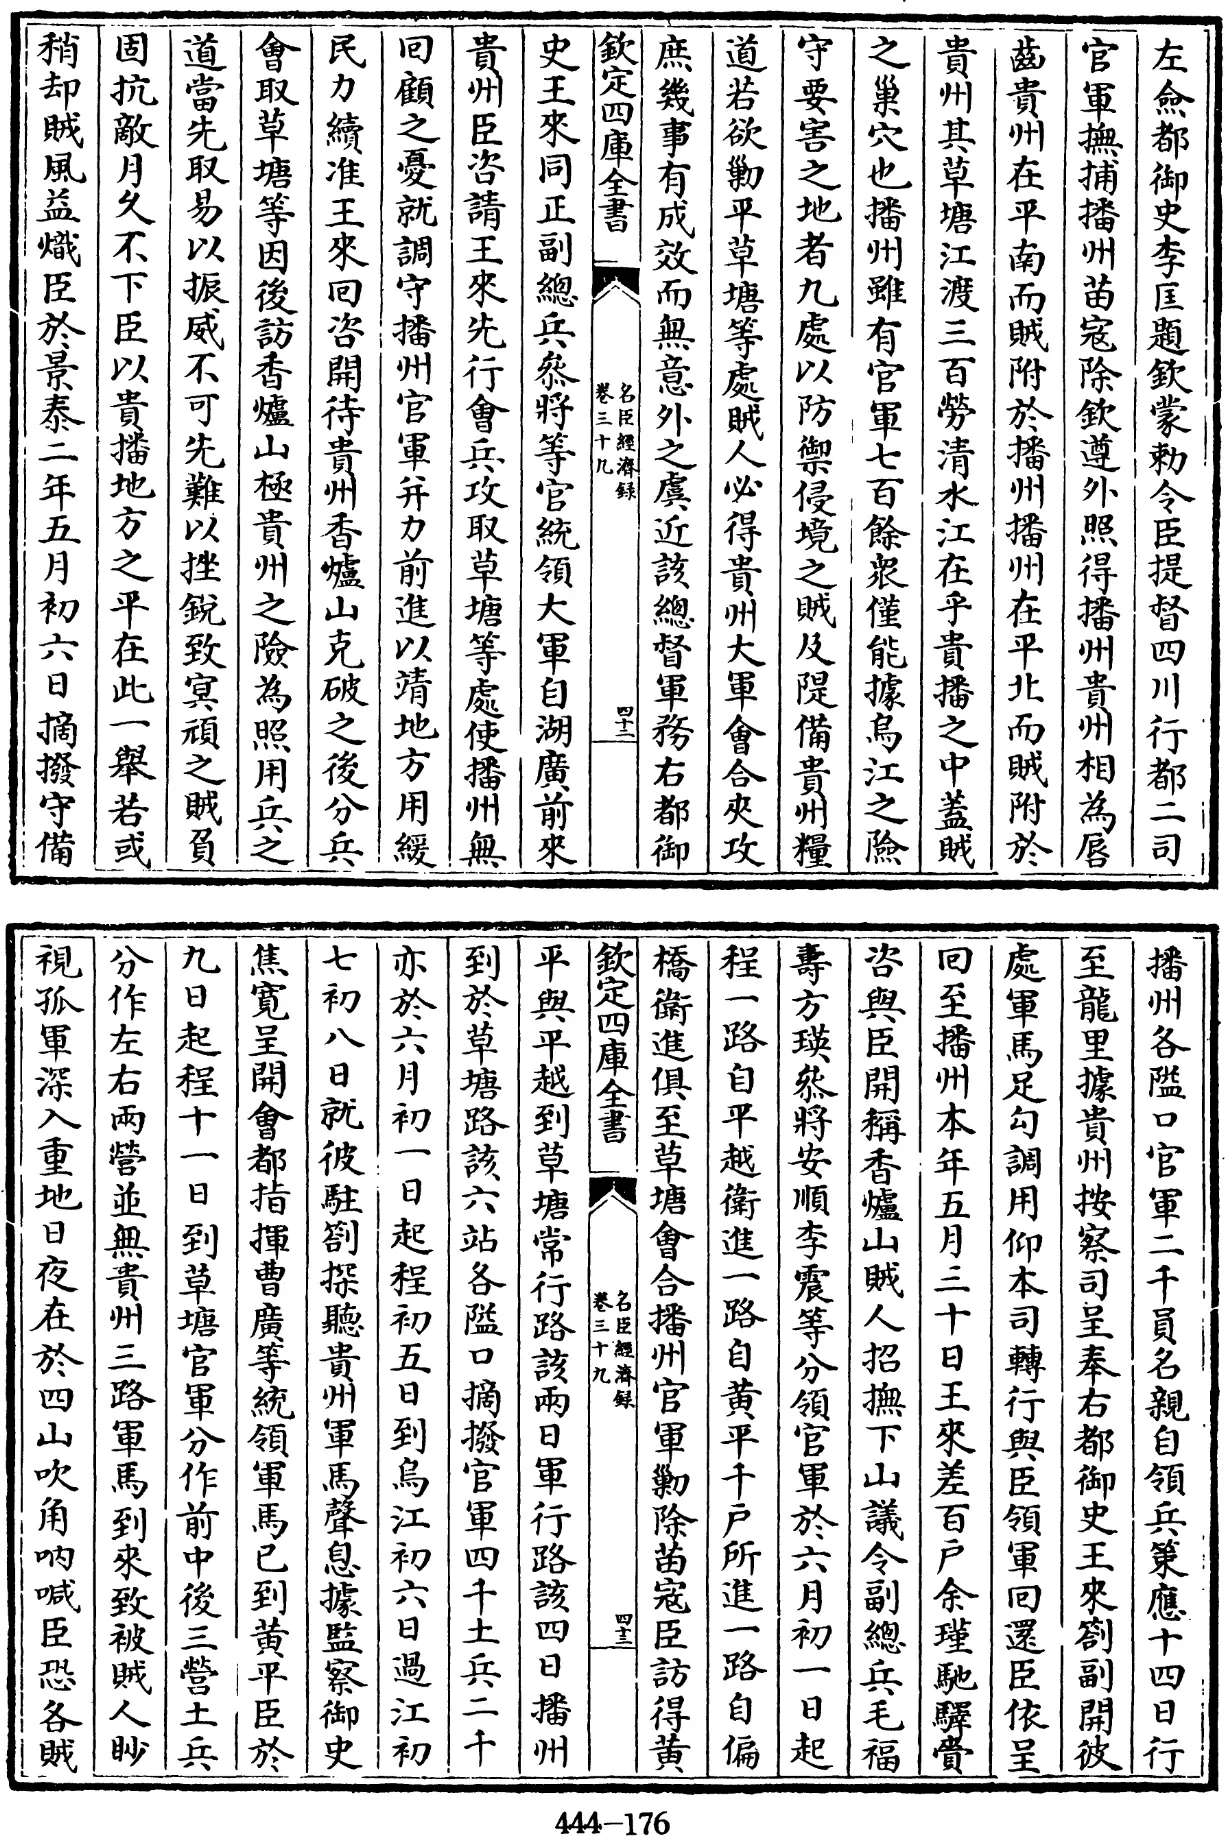 左僉都御史李匡題欽蒙勅令臣提督四川行都二司
官軍撫捕播州苗寇除欽遵外照得播州貴州相為唇
齒貴州在平南而賊附於播州播州在平北而賊附於
貴州其草塘江渡三百勞清水江在乎貴播之中蓋賊
之巢穴也播州雖有官軍七百餘衆僅能據烏江之險
守要害之地者九處以防禦侵境之賊及隄備貴州糧
道若欲勦平草塘等處賊人必得貴州大軍會合夾攻
庶幾事有成效而無意外之虞近該總督軍務右都御
欽定四庫全書
名臣經濟録
卷三十九
四十二
史王來同正副總兵叅將等官統領大軍自湖廣前來
貴州臣咨請王來先行會兵攻取草塘等處使播州無
回顧之憂就調守播州官軍并力前進以靖地方用緩
民力續准王來回咨開待貴州香爐山克破之後分兵
會取草塘等因後訪香爐山極貴州之險為照用兵之
道當先取易以振威不可先難以挫銳致冥頑之賊負
固抗敵月久不下臣以貴播地方之平在此一舉若或
稍却賊風益熾臣於景泰二年五月初六日摘撥守備
播州各隘口官軍二千員名親自領兵策應十四日行
至龍里據貴州按察司呈奉右都御史王來劄副開彼
處軍馬足勾調用仰本司轉行與臣領軍回還臣依呈
回至播州本年五月三十日王來差百户余瑾馳驛賫
咨與臣開稱香爐山賊人招撫下山議令副總兵毛福
壽方瑛叅將安順李震等分領官軍於六月初一日起
程一路自平越衛進一路自黄平千戶所進一路自偏
橋衛進俱至草塘會合播州官軍勦除苗寇臣訪得黄
欽定四庫全書
名臣經濟録
卷三十九
四十三
平與平越到草塘常行路該兩日軍行路該四日播州
到於草塘路該六站各隘口摘撥官軍四千土兵二千
亦於六月初一日起程初五日到烏江初六日過江初
七初八日就彼駐劄探聽貴州軍馬聲息據監察御史
焦寬呈開會都指揮曹廣等統領軍馬已到黄平臣於
九日起程十一日到草塘官軍分作前中後三營土兵
分作左右兩營並無貴州三路軍馬到來致被賊人眇
視孤軍深入重地日夜在於四山吹角吶喊臣恐各賊
444-176